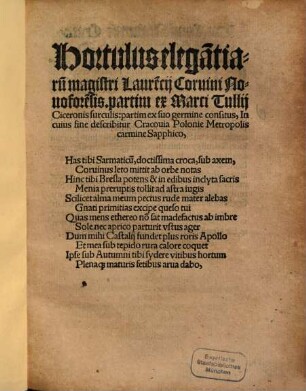 Hortulus elegãtia-
rũ magistri Laurẽcij Coruini No-
uoforẽsis. partim ex Marci Tullij
Ciceronis surculis: partim ex suo germine consitus, In
cuius fine describitur Cracouia Polonie Metropolis
carmine Sapphico,
Has tibi Sarmaticũ, doctissima croca, sub axem,
Coruinus leto mittit ab orbe notas
Hinc tibi Bresla potens & in edibus inclyta sacris
Menia preruptis tollit ad astra iugis
Scilicet alma meum pectus rude mater alebas
Gnati primitias excipe queso tui
Quas mens ethereo nõ sat madefactus ab imbre
Sole. nec aprico parturit vstus ager
Dum mihi Castalij fundet plus roris Apollo
Et me sub tepido rura calore coquet
Ipse sub Autumni tibi sydere vitibus hortum
Plenaq; maturis fetibus arua dabo,
Bayerische
Staatsbibliothek
München